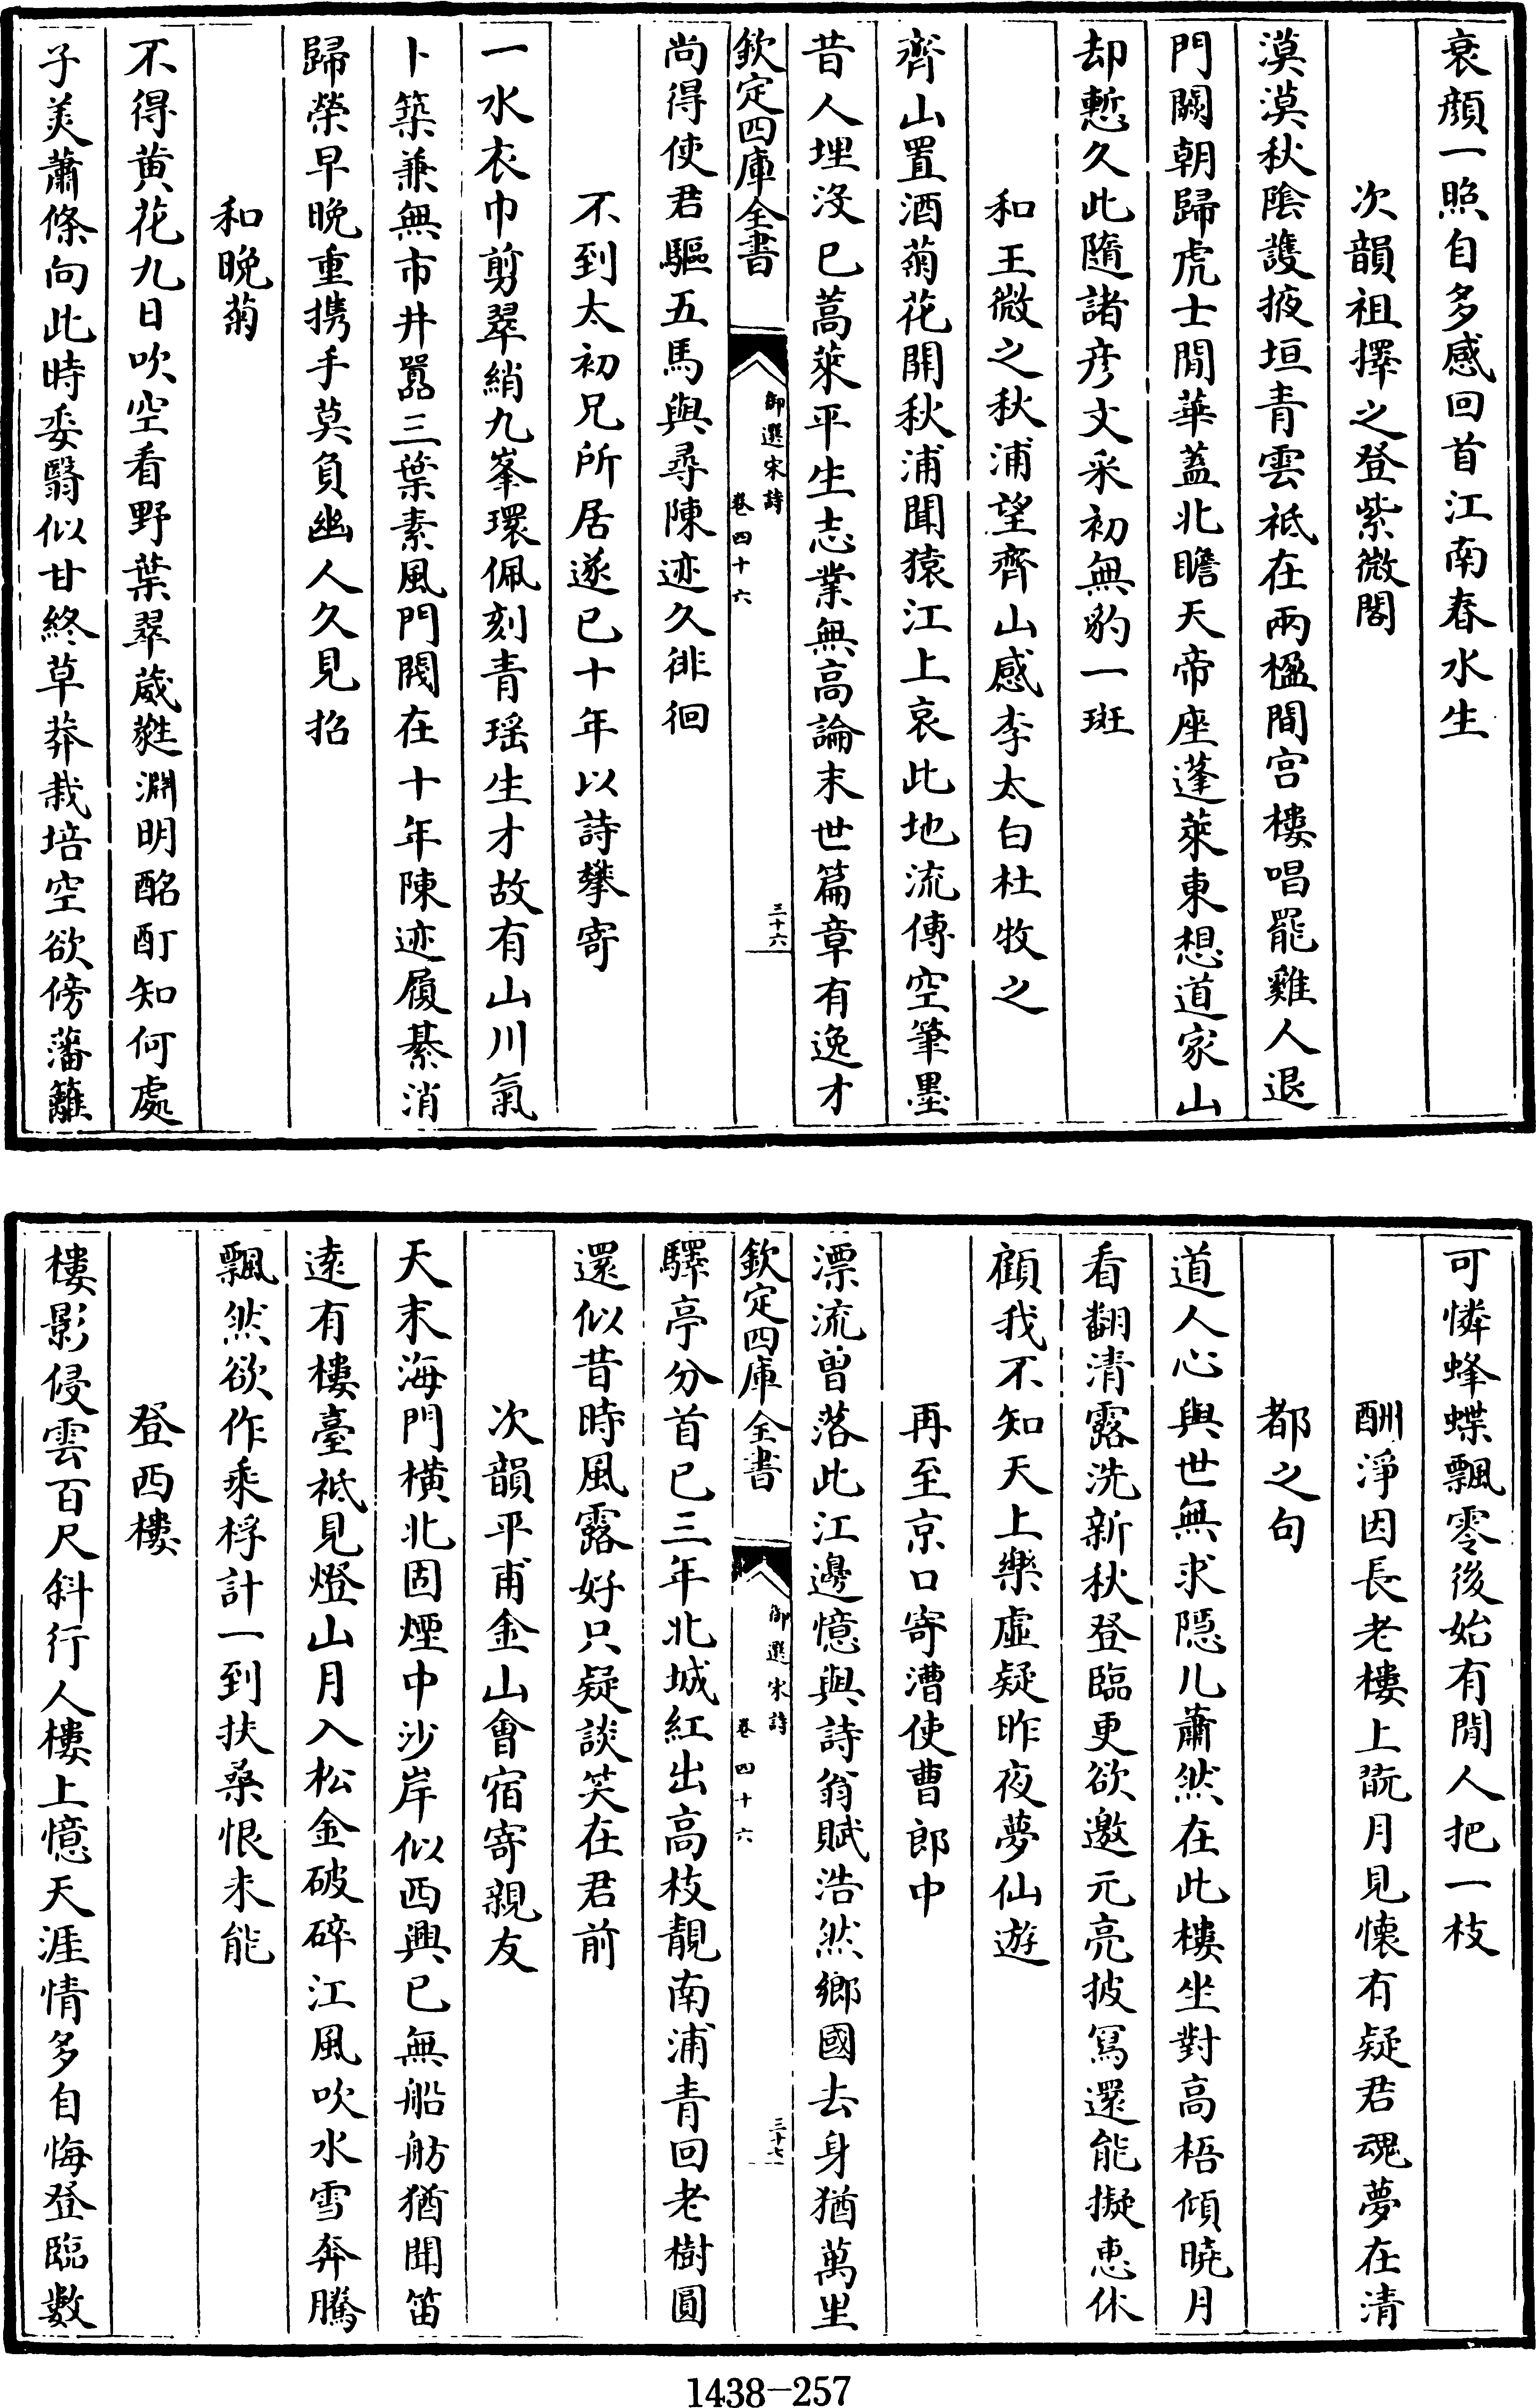 衰顔一照自多感回首江南春水生
次韻祖擇之登紫微閣
漠漠秋陰護掖垣青雲祗在兩楹間宫樓唱罷雞人退
門闕朝歸虎士閒華蓋北瞻天帝座蓬萊東想道家山
却慙久此隨諸彦文采初無豹一斑
和王微之秋浦望齊山感李太白杜牧之
齊山置酒菊花開秋浦聞猿江上哀此地流傳空筆墨
昔人埋沒已蒿萊平生志業無高論末世篇章有逸才
欽定四庫全書
御選宋詩
卷四十六
三十六
尚得使君驅五馬與尋陳迹久徘徊
不到太初兄所居遂已十年以詩攀寄
一水衣巾剪翠綃九峯環佩刻青瑶生才故有山川氣
卜築兼無市井囂三葉素風門閥在十年陳迹履綦消
歸榮早晚重攜手莫負幽人久見招
和晚菊
不得黄花九日吹空看野葉翠葳蕤淵明酩酊知何處
子美蕭條向此時委翳似甘終草莽栽培空欲傍藩籬
可憐蜂蝶飄零後始有閒人把一枝
酬淨因長老樓上翫月見懐有疑君魂夢在清
都之句
道人心與世無求隠几蕭然在此樓坐對高梧傾曉月
看翻清露洗新秋登臨更欲邀元亮披冩還能擬恵休
顧我不知天上樂虚疑昨夜夢仙遊
再至京口寄漕使曹郎中
漂流曾落此江邊憶與詩翁賦浩然鄉國去身猶萬里
欽定四庫全書
御選宋詩
卷四十六
三十七
驛亭分首已三年北城紅出高枝靚南浦青回老樹圓
還似昔時風露好只疑談笑在君前
次韻平甫金山會宿寄親友
天末海門横北固煙中沙岸似西興已無船舫猶聞笛
逺有樓臺祗見燈山月入松金破碎江風吹水雪奔騰
飄然欲作乘桴計一到扶桑恨未能
登西樓
樓影侵雲百尺斜行人樓上憶天涯情多自悔登臨數
1438—257